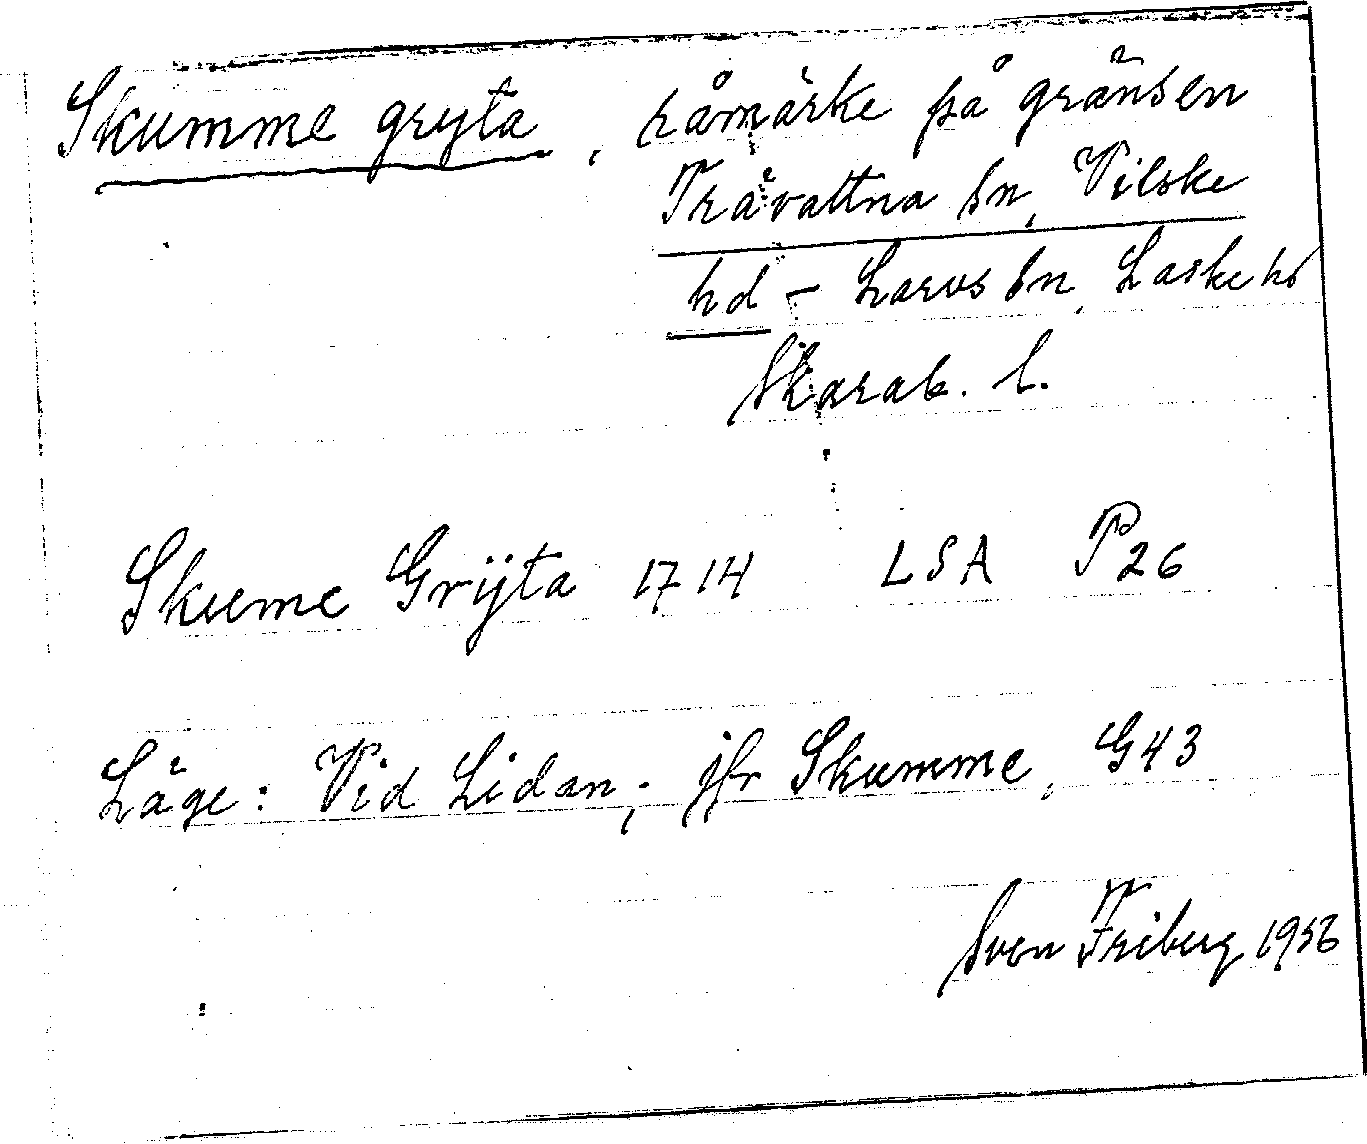 Skumme gryta, råmärke på gränsen
Trävattna sn, Vilske
hd - Larvs sn, Laske hd
Skarab. l.
Skume Grÿta 1714 LSA P26
Läge: Vid Lidan; jfr Skumme, G43
Sven Friberg 1956